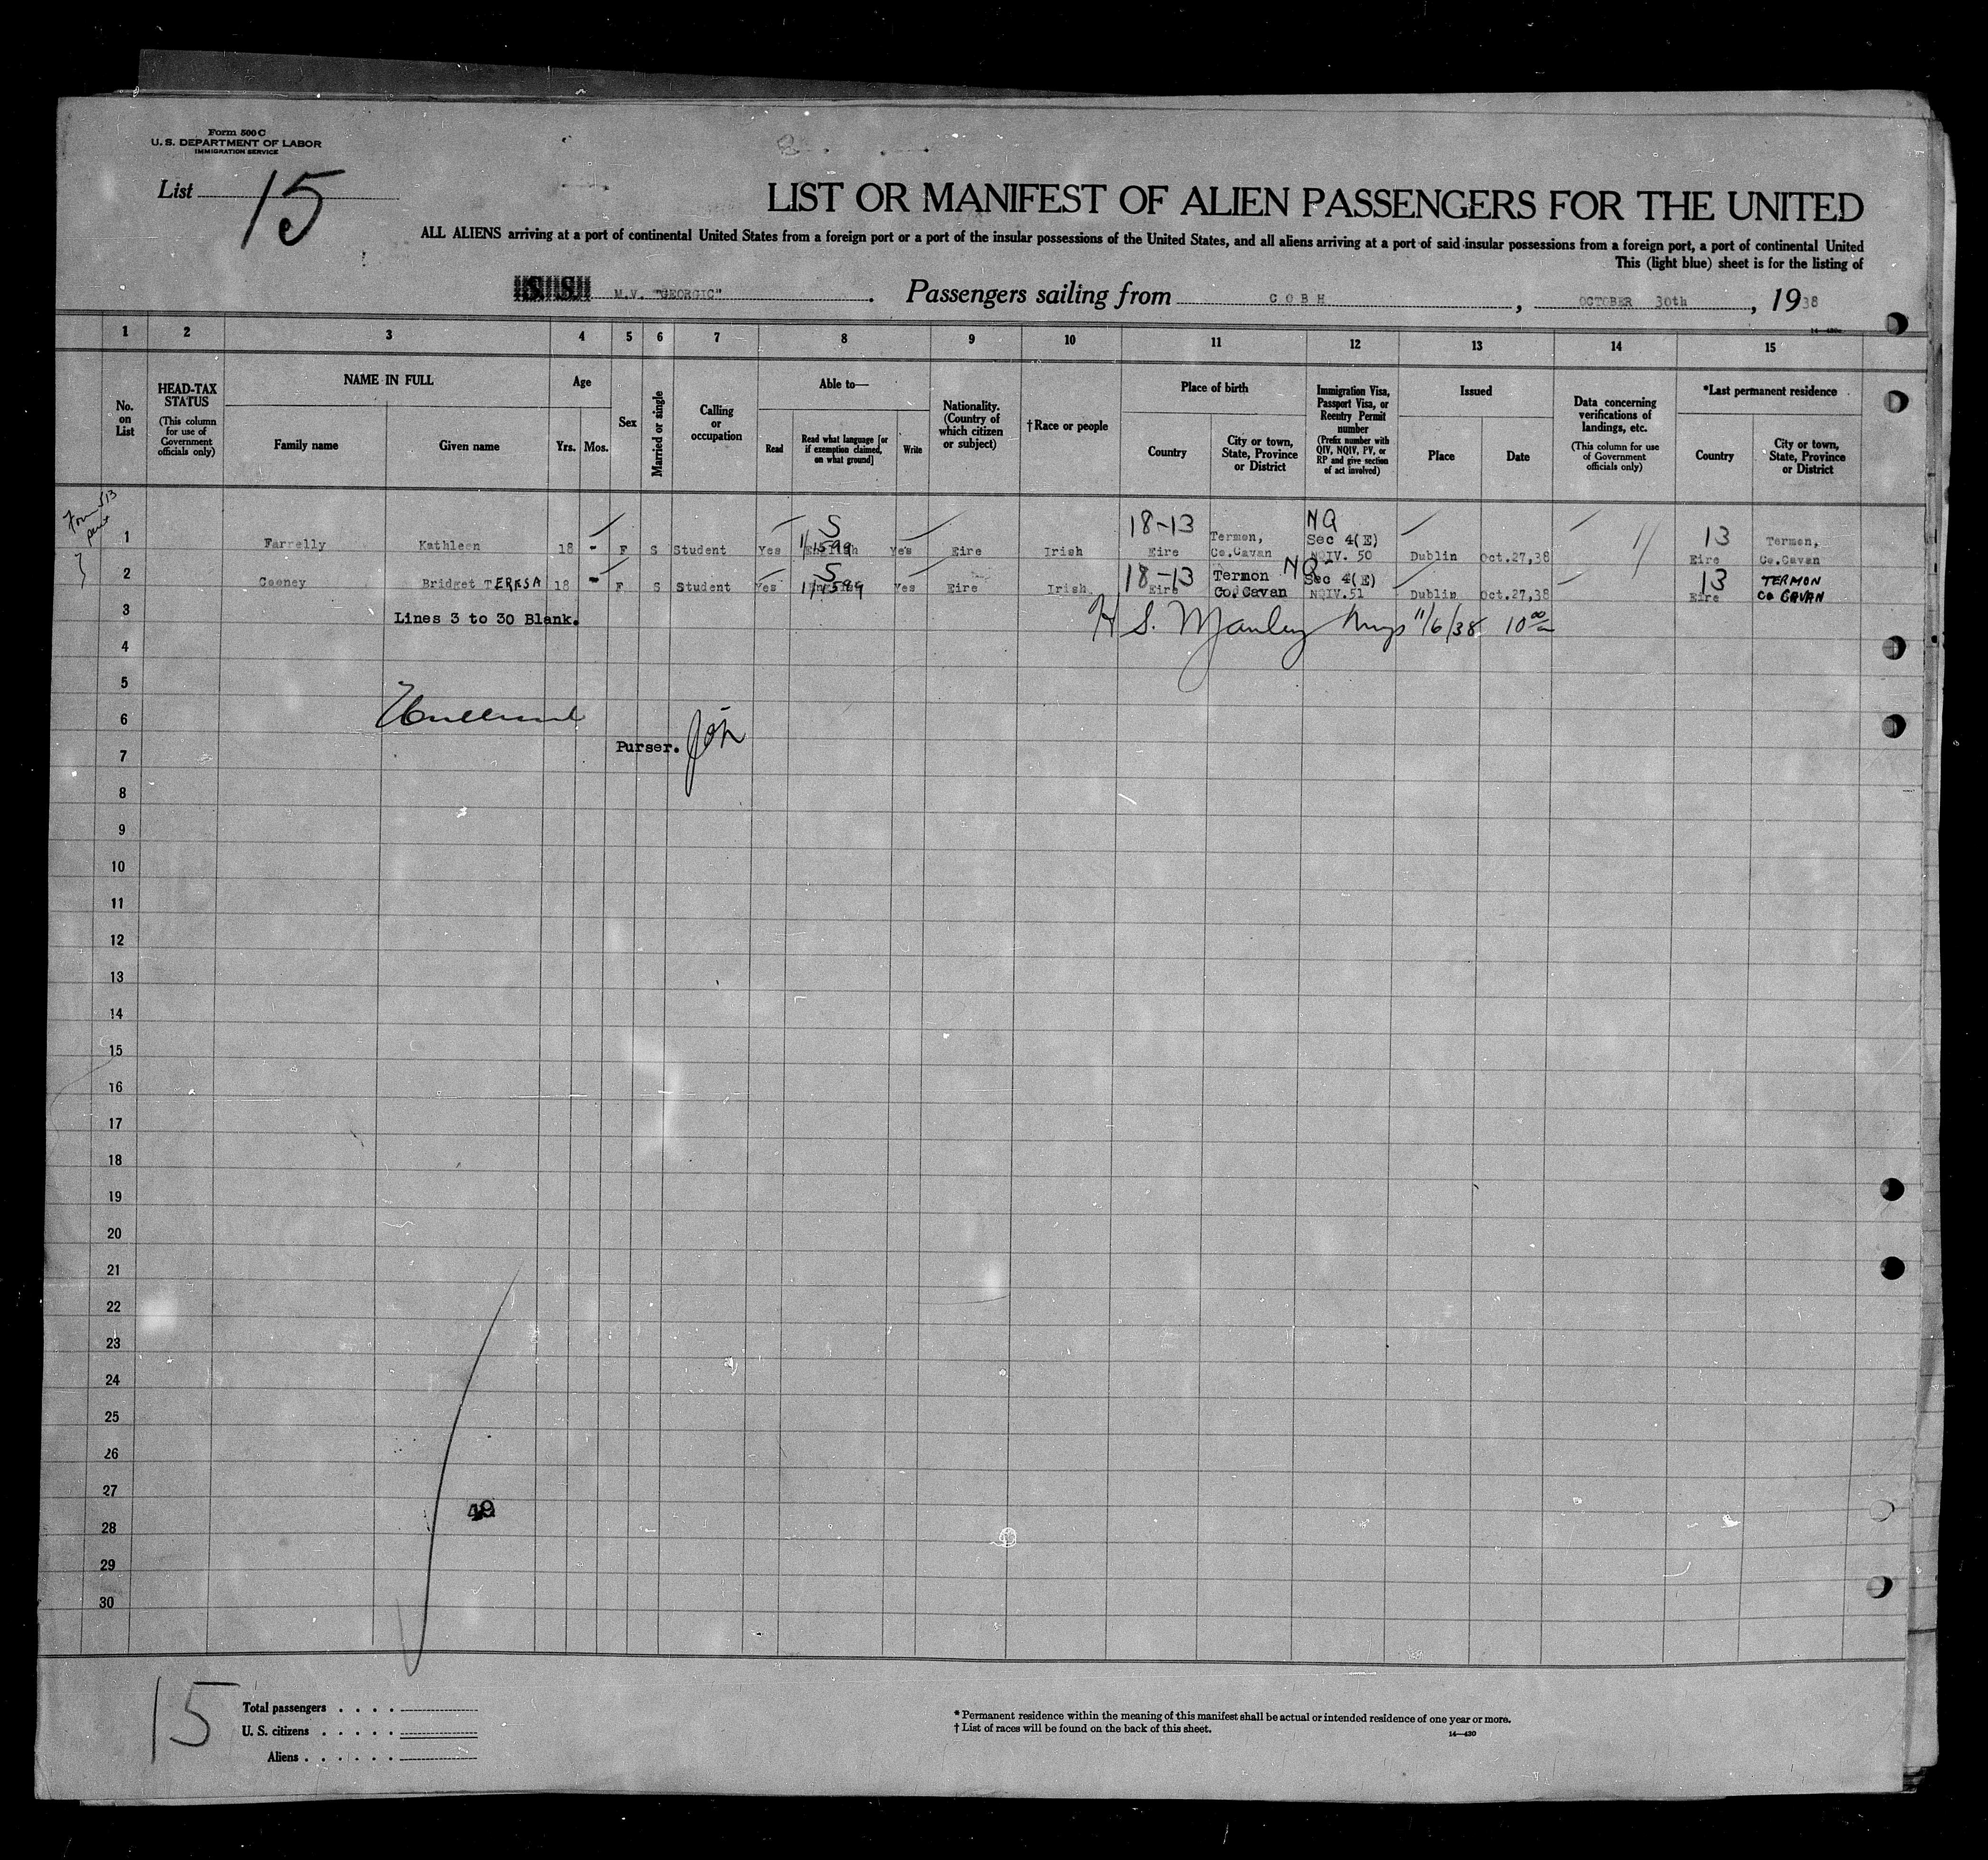 Form 500 C
U. S. DEPARTMENT OF LABOR
IMMIGRATION SERVICE
List 15
LIST OR MANIFEST OF ALIEN PASSENGERS FOR THE UNITED
ALL ALIENS arriving at a port of continental United States from a foreign port or a port of the insular possessions of the United States, and all aliens arriving at a port of said insular possessions from a foreign port, a port of continental United
This (light blue) sheet is for the listing of
M.V. "GEORGIC". Passengers sailing from COBH, OCTOBER 30th, 1938
1 2 3 4 5 6 7 8 9 10 11 12 13 14 15
No. on List
HEAD-TAX STATUS
(This column for use of Government officials only)
NAME IN FULL
Family name
Given name
Age
Yrs. Mos.
Sex
Married or single
Calling or occupation
Able to—
Read
Read what language [or if exemption claimed, on what ground]
Write
Nationality. (Country of which citizen or subject)
†Race or people
Place of birth
Country
City or town, State, Province or District
Immigration Visa, Passport Visa, or Reentry Permit number
(Prefix number with QIV, NQIV, PV, or RP and give section of act involved)
Issued
Place
Date
Data concerning verifications of landings, etc.
(This column for use of Government officials only)
*Last permanent residence
Country
City or town, State, Province or District
18-13 NQ 13
1 Farrelly Kathleen 18 - F S Student Yes English Yes Eire Irish Eire Termon, Co.Cavan Sec 4(E) NQIV. 50 Dublin Oct.27,38 Eire Termon, Co.Cavan
18-13 NQ 13
2 Cooney Bridget TERESA 18 - F S Student Yes English Yes Eire Irish Eire Termon Co. Cavan Sec 4(E) NQIV.51 Dublin Oct.27,38 Eire TERMON Co CAVAN
3 Lines 3 to 30 Blank. H S. Manley Insp 11/6/38 10 00
4
5
6
Purser.
7
8
9
10
11
12
13
14
15
16
17
18
19
20
21
22
23
24
25
26
27
49
28
29
30
15
Total passengers
U. S. citizens
Aliens
* Permanent residence within the meaning of this manifest shall be actual or intended residence of one year or more.
† List of races will be found on the back of this sheet.
14—430